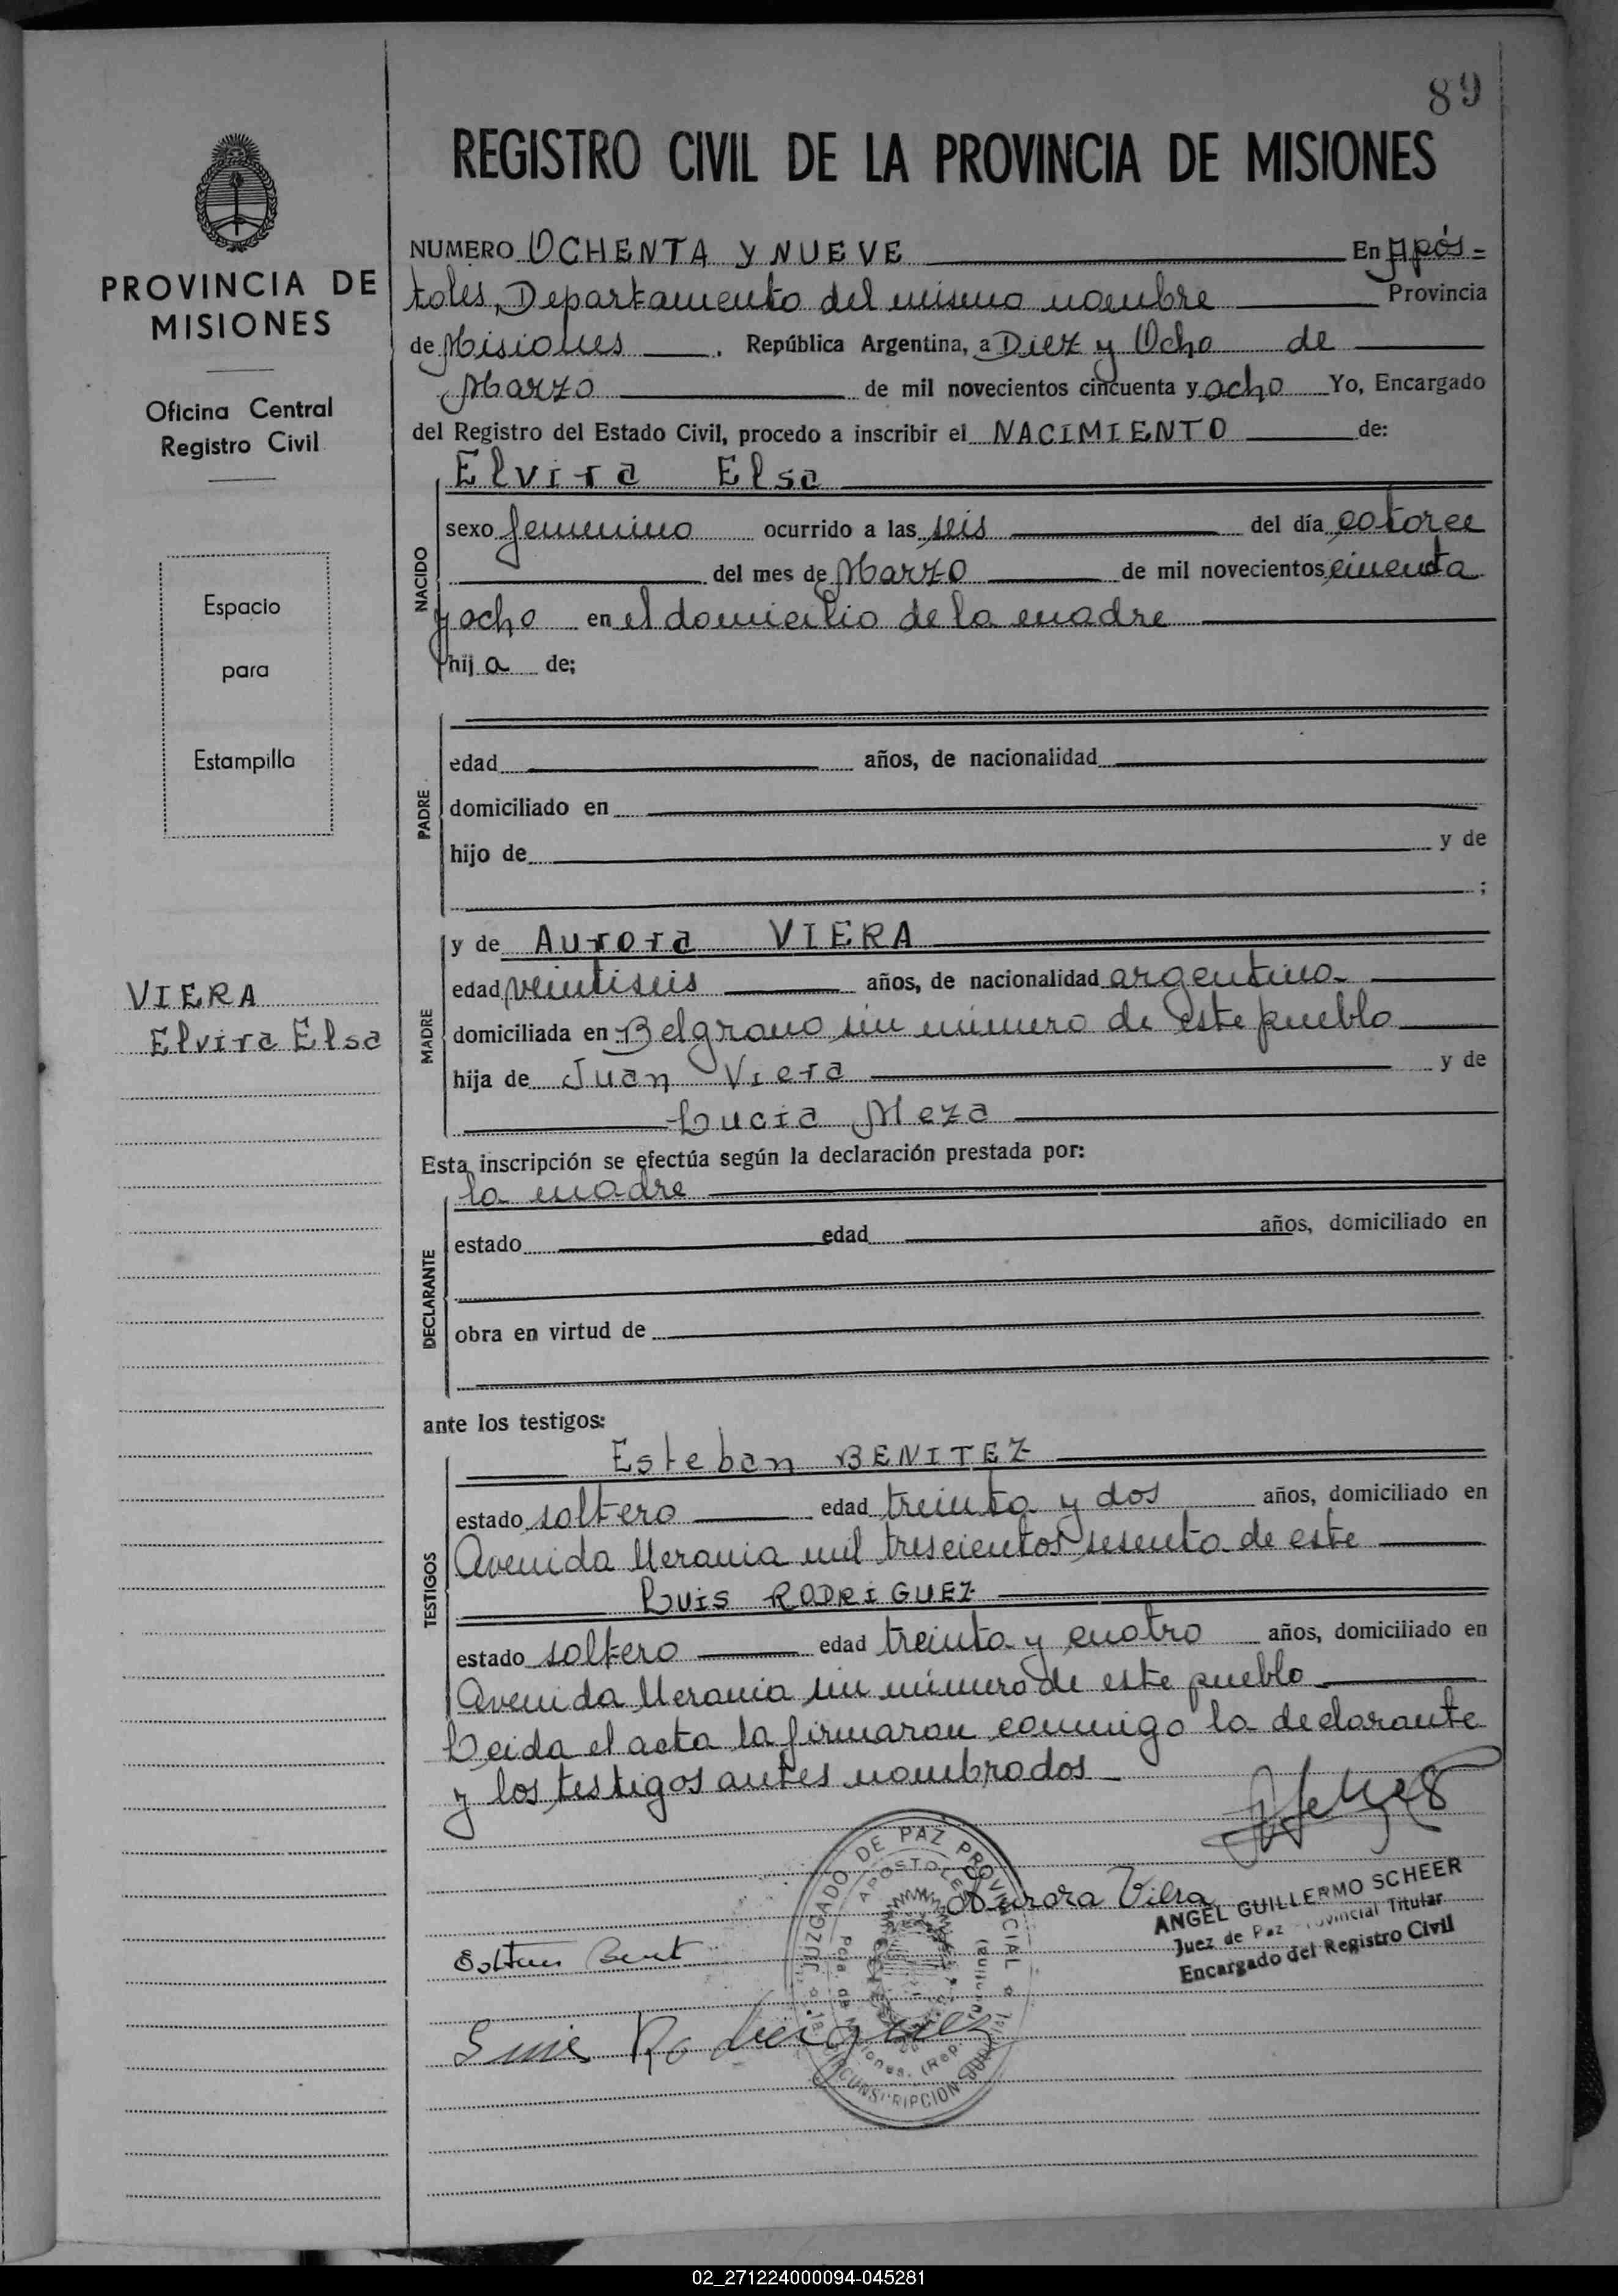 89
REGISTRO CIVIL DE LA PROVINCIA DE MISIONES
PROVINCIA DE
MISIONES
Oficina Central
Registro Civil
Espacio
para
Estampilla
VIERA
Elvira Elsa
NUMERO OCHENTA Y NUEVE En Após=
toles, Departamento del mismo nombre Provincia
de Misiones . República Argentina, a Diez y Ocho de
Marzo de mil novecientos cincuenta y ocho Yo, Encargado
del Registro del Estado Civil, procedo a inscribir el NACIMIENTO de:
NACIDO
Elvira Elsa
sexo femenino ocurrido a las seis del día catorce
del mes de Marzo de mil novecientos cincuenta
y ocho en el domicilio de la madre
hija de;
PADRE
edad años, de nacionalidad
domiciliado en
hijo de y de
;
MADRE
y de Aurora VIERA
edad veintiseis años, de nacionalidad argentina
domiciliada en Belgrano sin número de este pueblo
hija de Juan Viera y de
Lucia Meza
Esta inscripción se efectúa según la declaración prestada por:
DECLARANTE
la madre
estado edad años, domiciliado en
obra en virtud de
ante los testigos:
TESTIGOS
Esteban BENITEZ
estado soltero edad treinta y dos años, domiciliado en
Avenida Ucrania mil trescientos sesenta de este
Luis RODRIGUEZ
estado soltero edad treinta y cuatro años, domiciliado en
Avenida Ucrania sin número de este pueblo
Leida el acta la firmaron conmigo la declarante
y los testigos antes nombrados
JUZGADO DE PAZ PROVINCIAL
APOSTOLES
CIRCUNSCRIPCION
Aurora Viera
ANGEL GUILLERMO SCHEER
Juez de Paz Provincial Titular
Encargado del Registro Civil
Luis Rodriguez
02_271224000094-045281